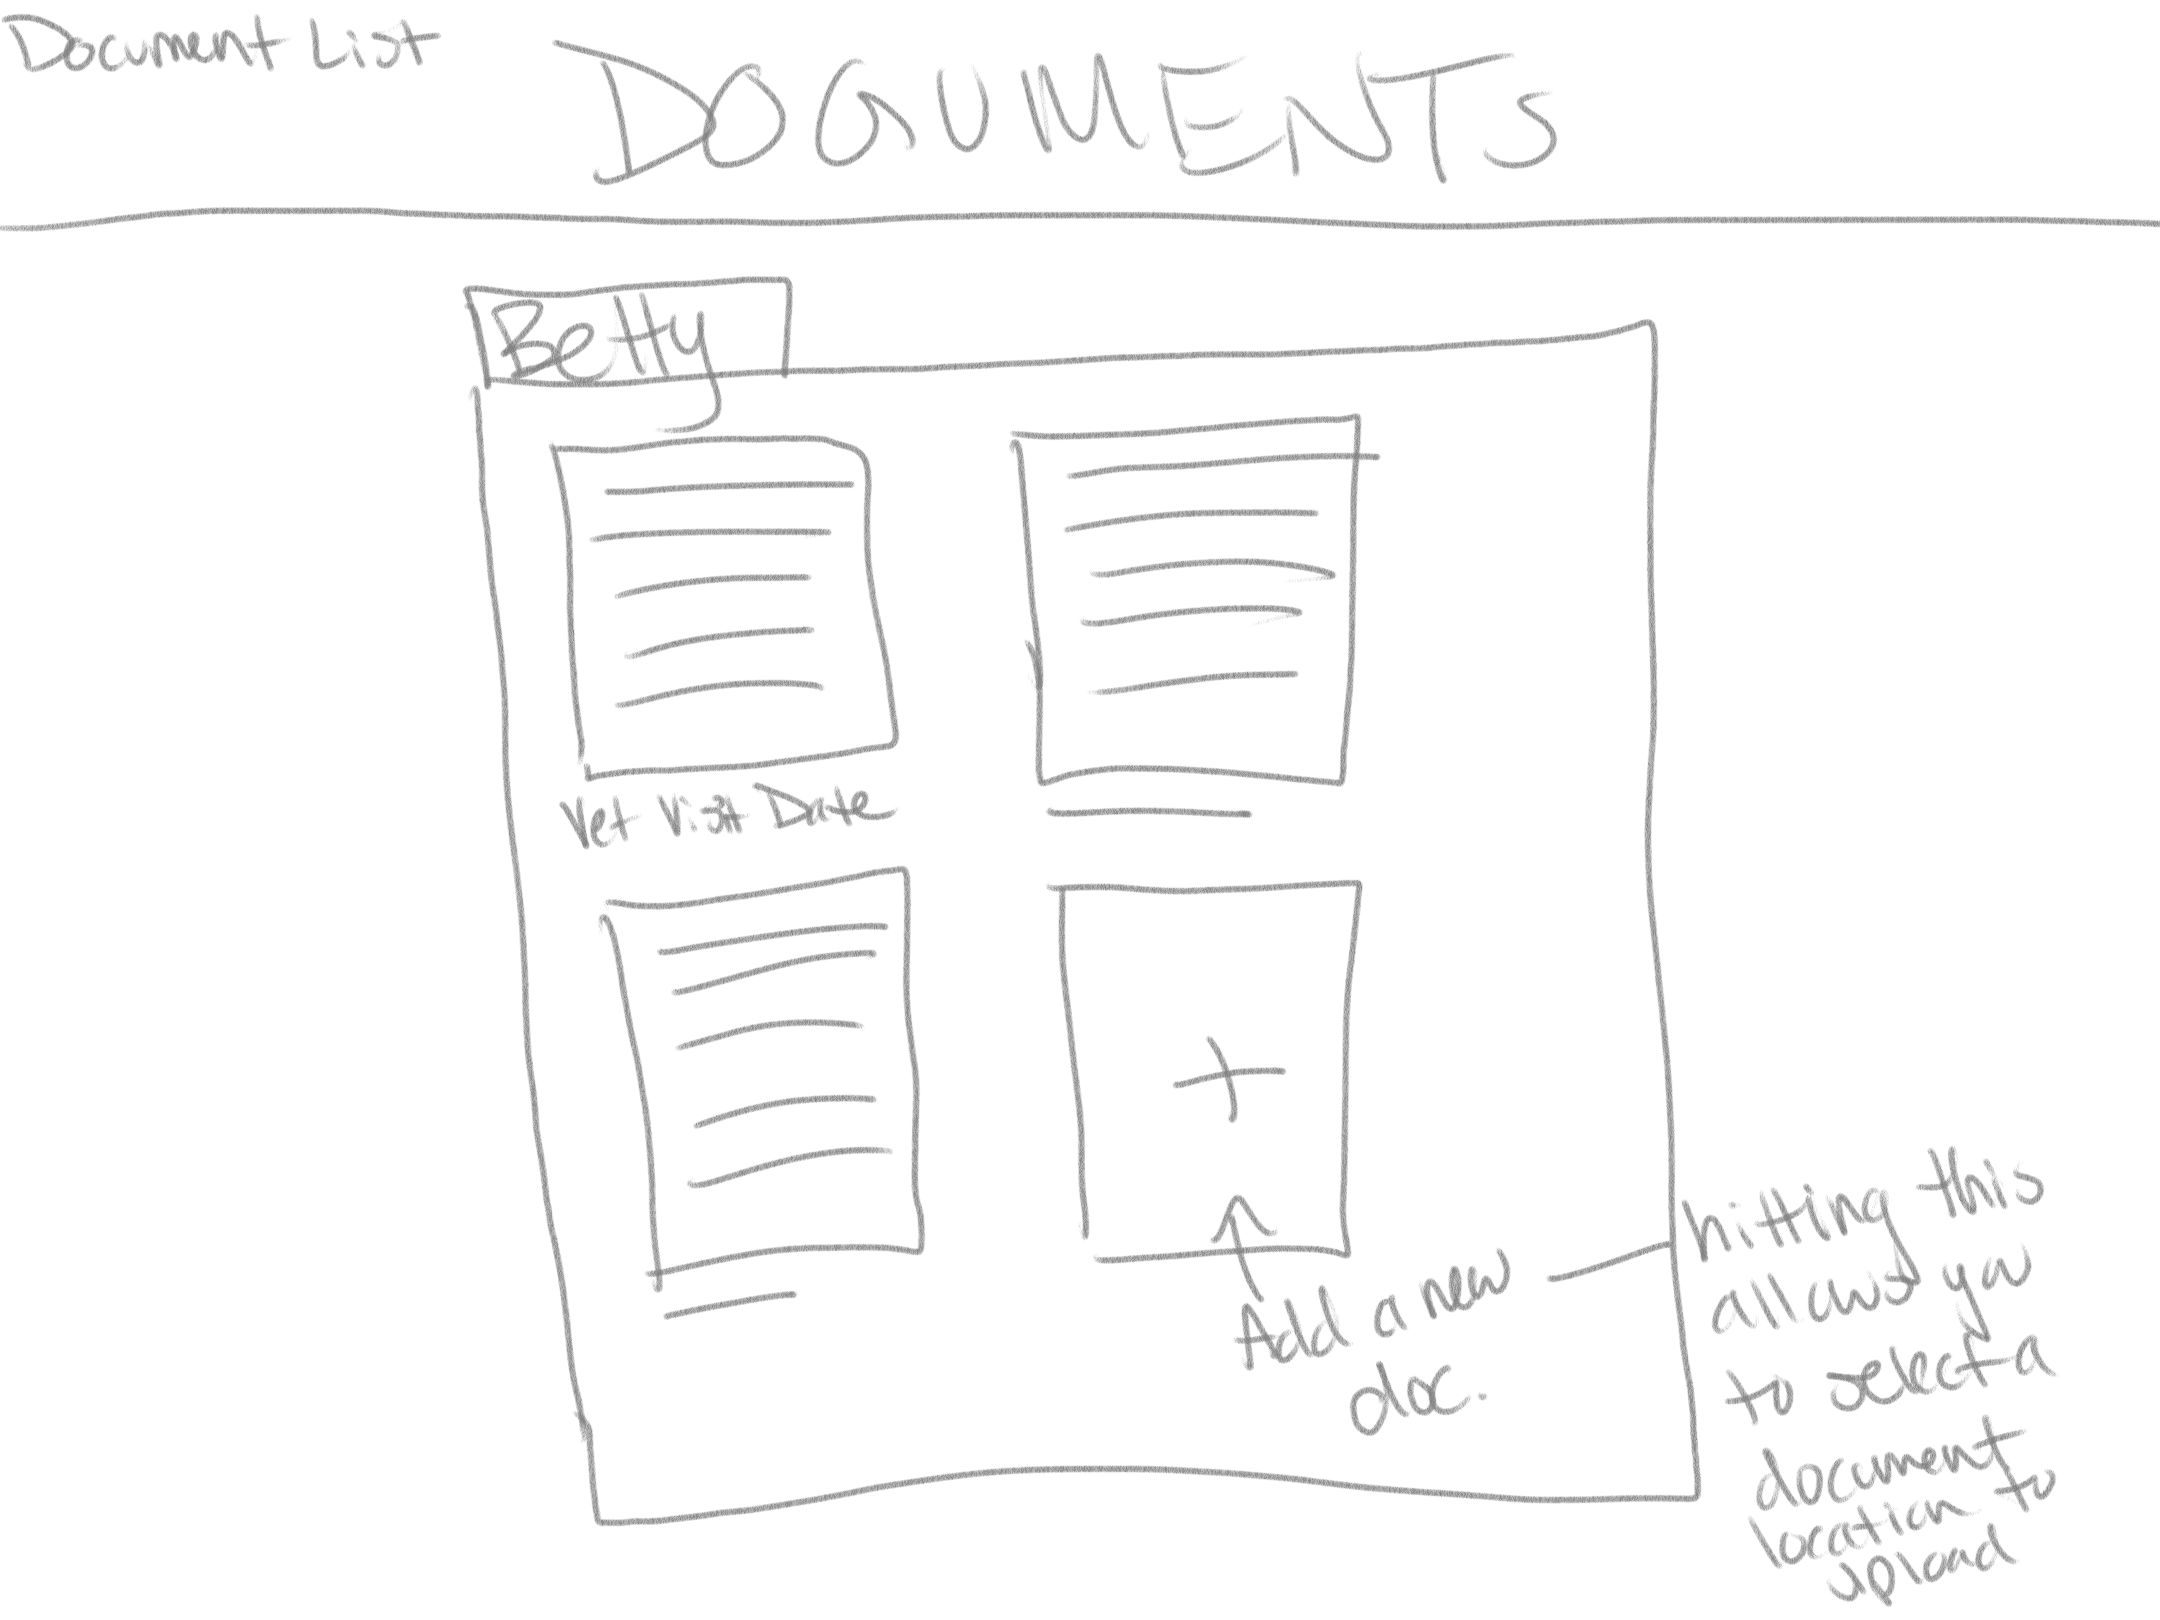 Document List
DOGUMENTS
Betty
Vet Visit Date
+
Add a new
doc.
hitting this
allows you
to select a
document
location to
upload